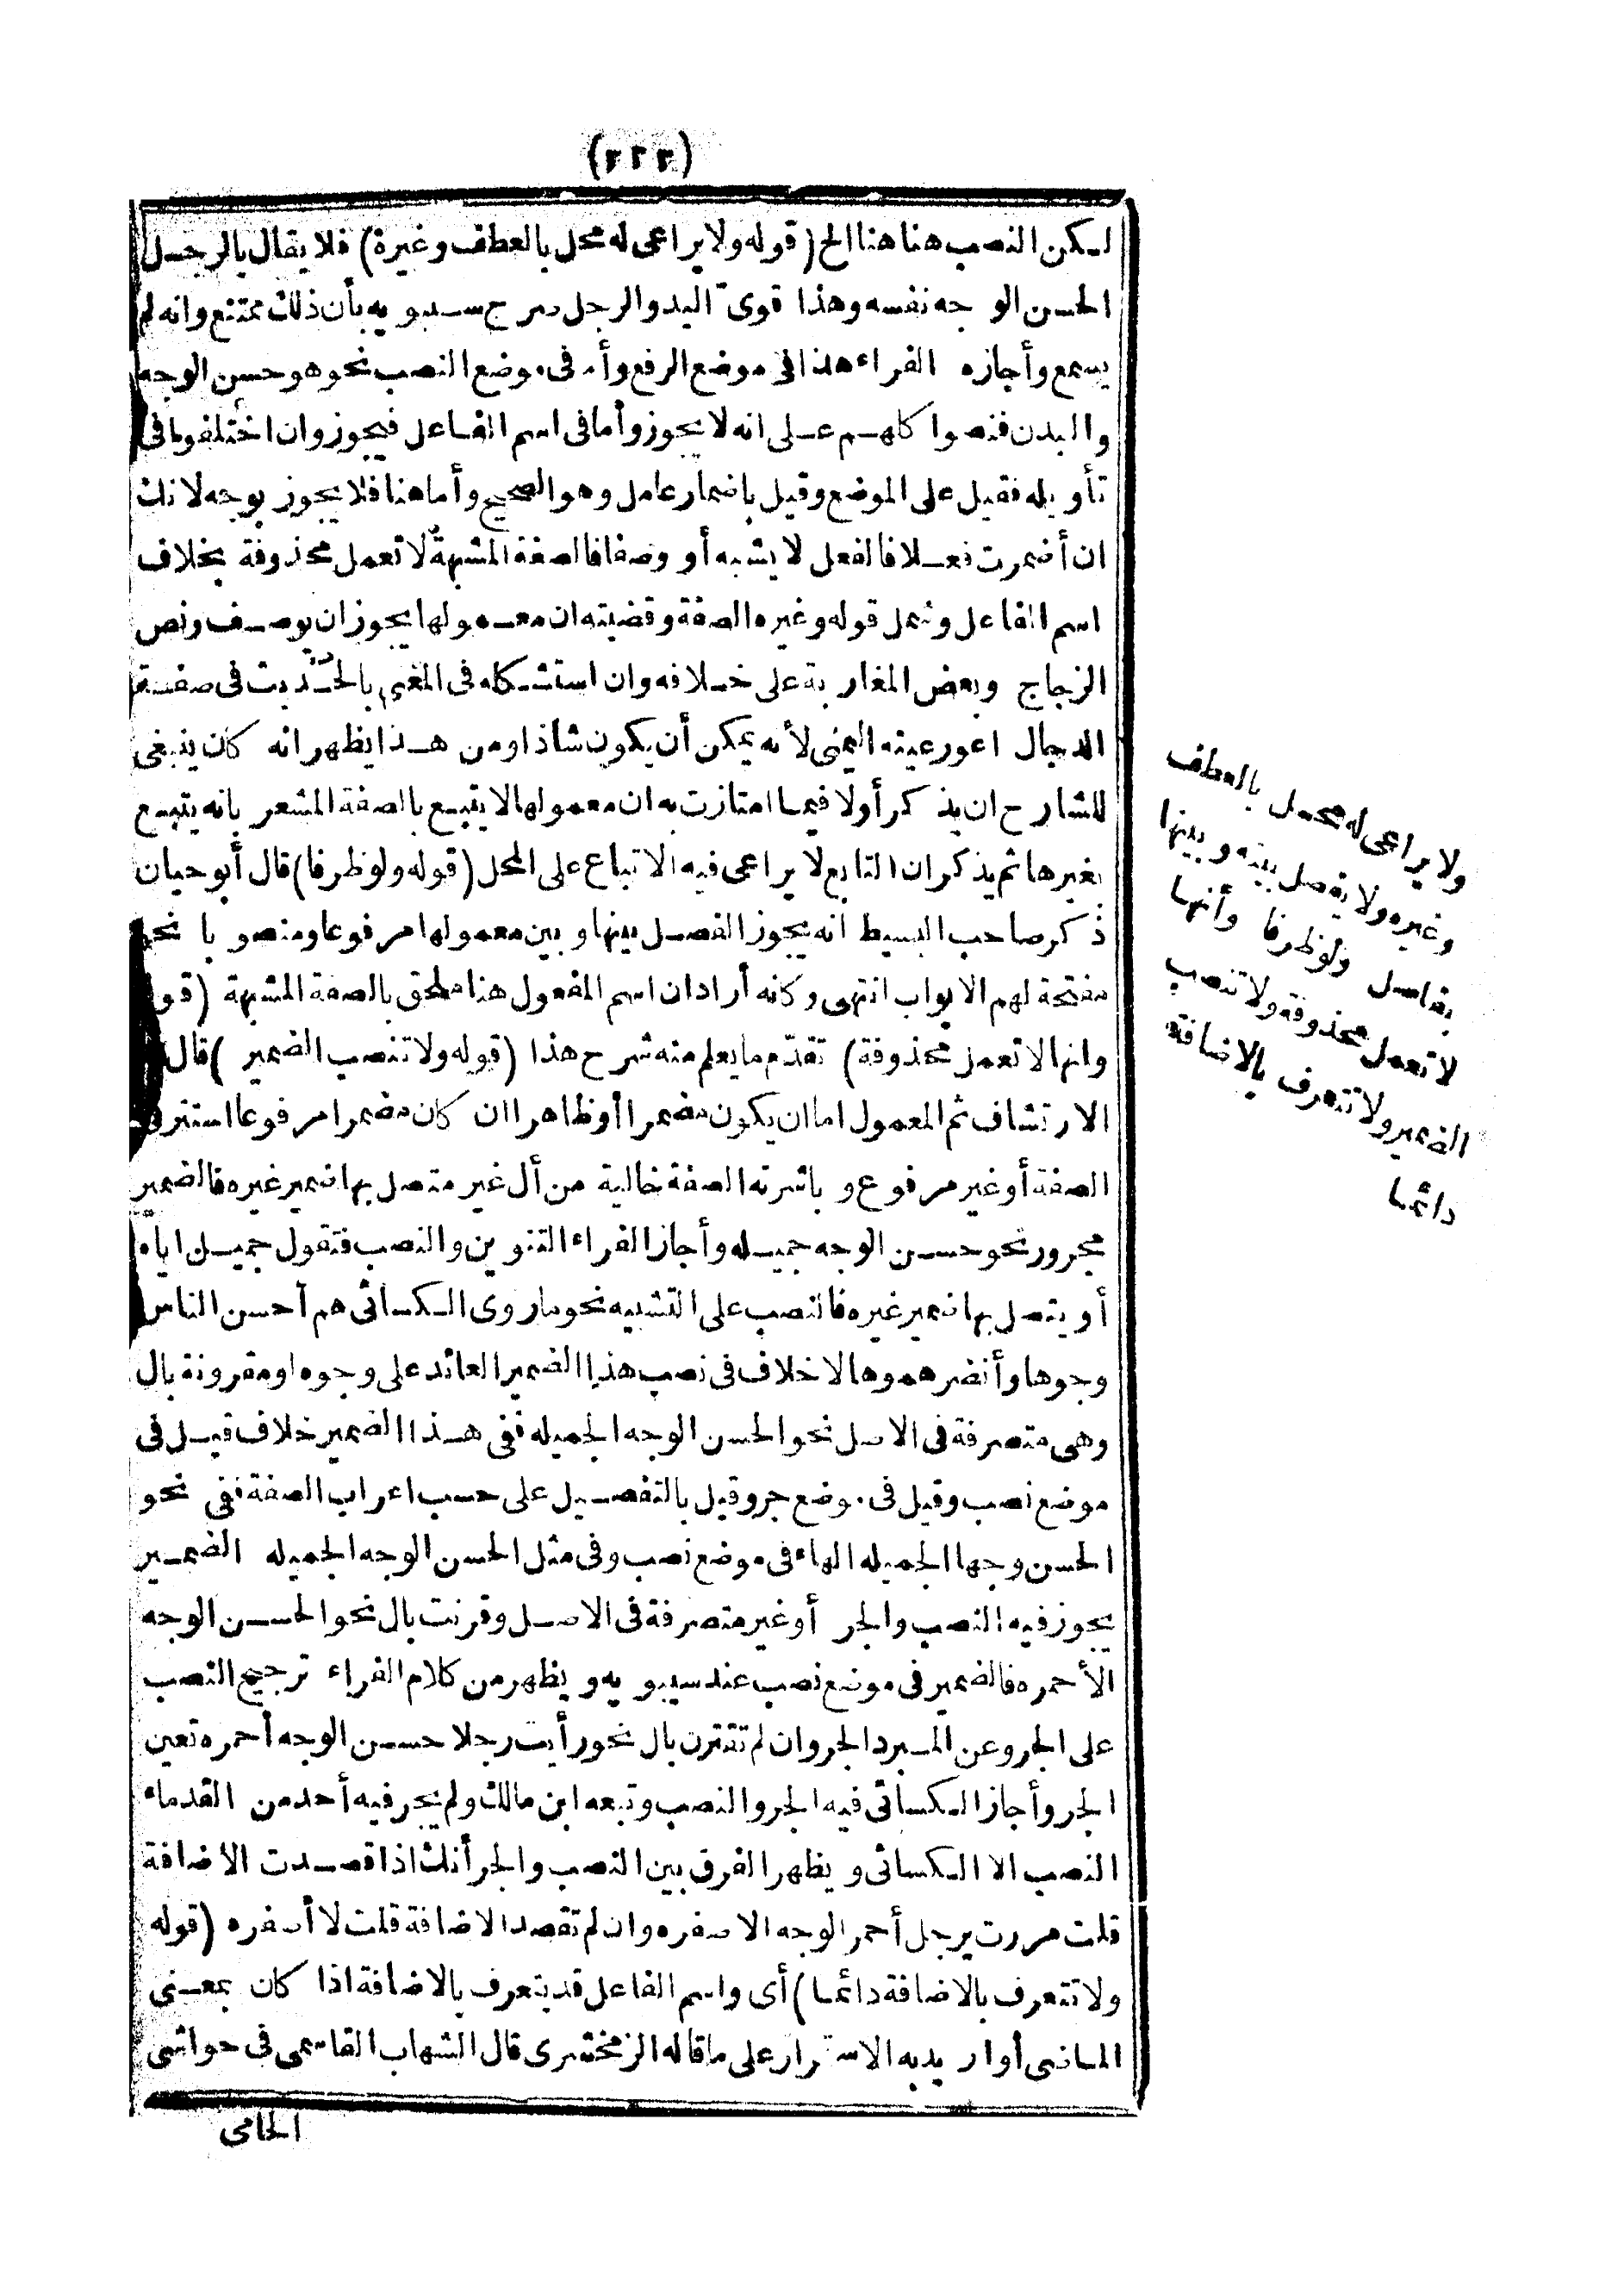 (٢٢٢)
لكن النصب هنا هنا الخ (قوله ولا يراعى له محل بالعطف وغيره) فلا يقال بالرجل
الحسن الوجه نفسه وهذا قوى اليد والرجل صرح سيبويه بأن ذلك ممتنع وانه لم
يسمع وأجازه الفراء هذا فى موضع الرفع وأما فى موضع النصب نحو هو حسن الوجه
والبدن فنصوا كلهم على انه لا يجوز وأما فى اسم الفاعل فيجوز وان اختلفوا فى
تأويله فقيل على الموضع وقيل باضمار عامل وهو الصحيح وأما هنا فلا يجوز بوجه لانك
ان أضمرت فعلا فالفعل لا يشبه أو وصفا فالصفة المشبهة لا تعمل محذوفة بخلاف
اسم الفاعل وشمل قوله وغيره الصفة وقضيته ان معمولها يجوز ان يوصف ونص
الزجاج وبعض المغاربة على خلافه وان استشكله فى المغنى بالحديث فى صفة
الدجال اعور عينه اليمنى لأنه يمكن أن يكون شاذا ومن هذا يظهر انه كان ينبغى
للشارح ان يذكر أولا فيما امتازت به ان معمولها لا يتبع بالصفة المشعر بانه يتبع
بغيرها ثم يذكر ان التابع لا يراعى فيه الاتباع على المحل (قوله ولو ظرفا) قال أبو حيان
ذكر صاحب البسيط انه يجوز الفصل بينها وبين معمولها مرفوعا ومنصوبا نحو
مفتحة لهم الابواب انتهى وكانه أراد ان اسم المفعول هنا ملحق بالصفة المشبهة (قو
وانها لا تعمل محذوفة) تقدّم ما يعلم منه شرح هذا (قوله ولا تنصب الضمير) قال
الارتشاف ثم المعمول اما ان يكون مضمرا أو ظاهرا ان كان مضمرا مرفوعا استتر فى
الصفة أو غير مرفوع وباشرته الصفة خالية من أل غير متصل بها ضمير غيره فالضمير
مجرور نحو حسن الوجه جميله وأجاز الفراء التنوين والنصب فتقول جميل اياه
أو يتصل بها ضمير غيره فالنصب على التشبيه نحو ما روى الكسائى هم أحسن الناس
وجوها وأنضرهموها لا خلاف فى نصب هذا الضمير العائد على وجوه او مقرونة بال
وهى متصرفة فى الاصل نحو الحسن الوجه الجميله ففى هذا الضمير خلاف قيل فى
موضع نصب وقيل فى موضع جر وقيل بالتفصيل على حسب اعراب الصفة ففى نحو
الحسن وجها الجميله الهاء فى موضع نصب وفى مثل الحسن الوجه الجميله الضمير
يجوز فيه النصب والجر أو غير متصرفة فى الاصل وقرنت بال نحو الحسن الوجه
الأحمره فالضمير فى موضع نصب عند سيبويه ويظهر من كلام الفراء ترجيح النصب
على الجر وعن المبرد الجر وان لم تقترن بال نحو رأيت رجلا حسن الوجه أحمره تعين
الجر وأجاز الكسائى فيه الجر والنصب وتبعه ابن مالك ولم يجر فيه أحد من القدماء
النصب الا الكسائى ويظهر الفرق بين النصب والجر أنك اذا قصدت الاضافة
قلت مررت برجل أحمر الوجه الاصفره وان لم تقصد الاضافة قلت لا أصفره (قوله
ولا تتعرف بالاضافة دائما) أى واسم الفاعل قد يتعرف بالاضافة اذا كان بمعنى
الماضى أو اريد به الاستمرار على ما قاله الزمخشرى قال الشهاب القاسمى فى حواشى
الجامى
ولا يراعى له محل بالعطف
وغيره ولا يفصل بينه وبينها
بفاصل ولو ظرفا وأنها
لا تعمل محذوفة ولا تنصب
الضمير ولا تتعرف بالاضافة
دائما